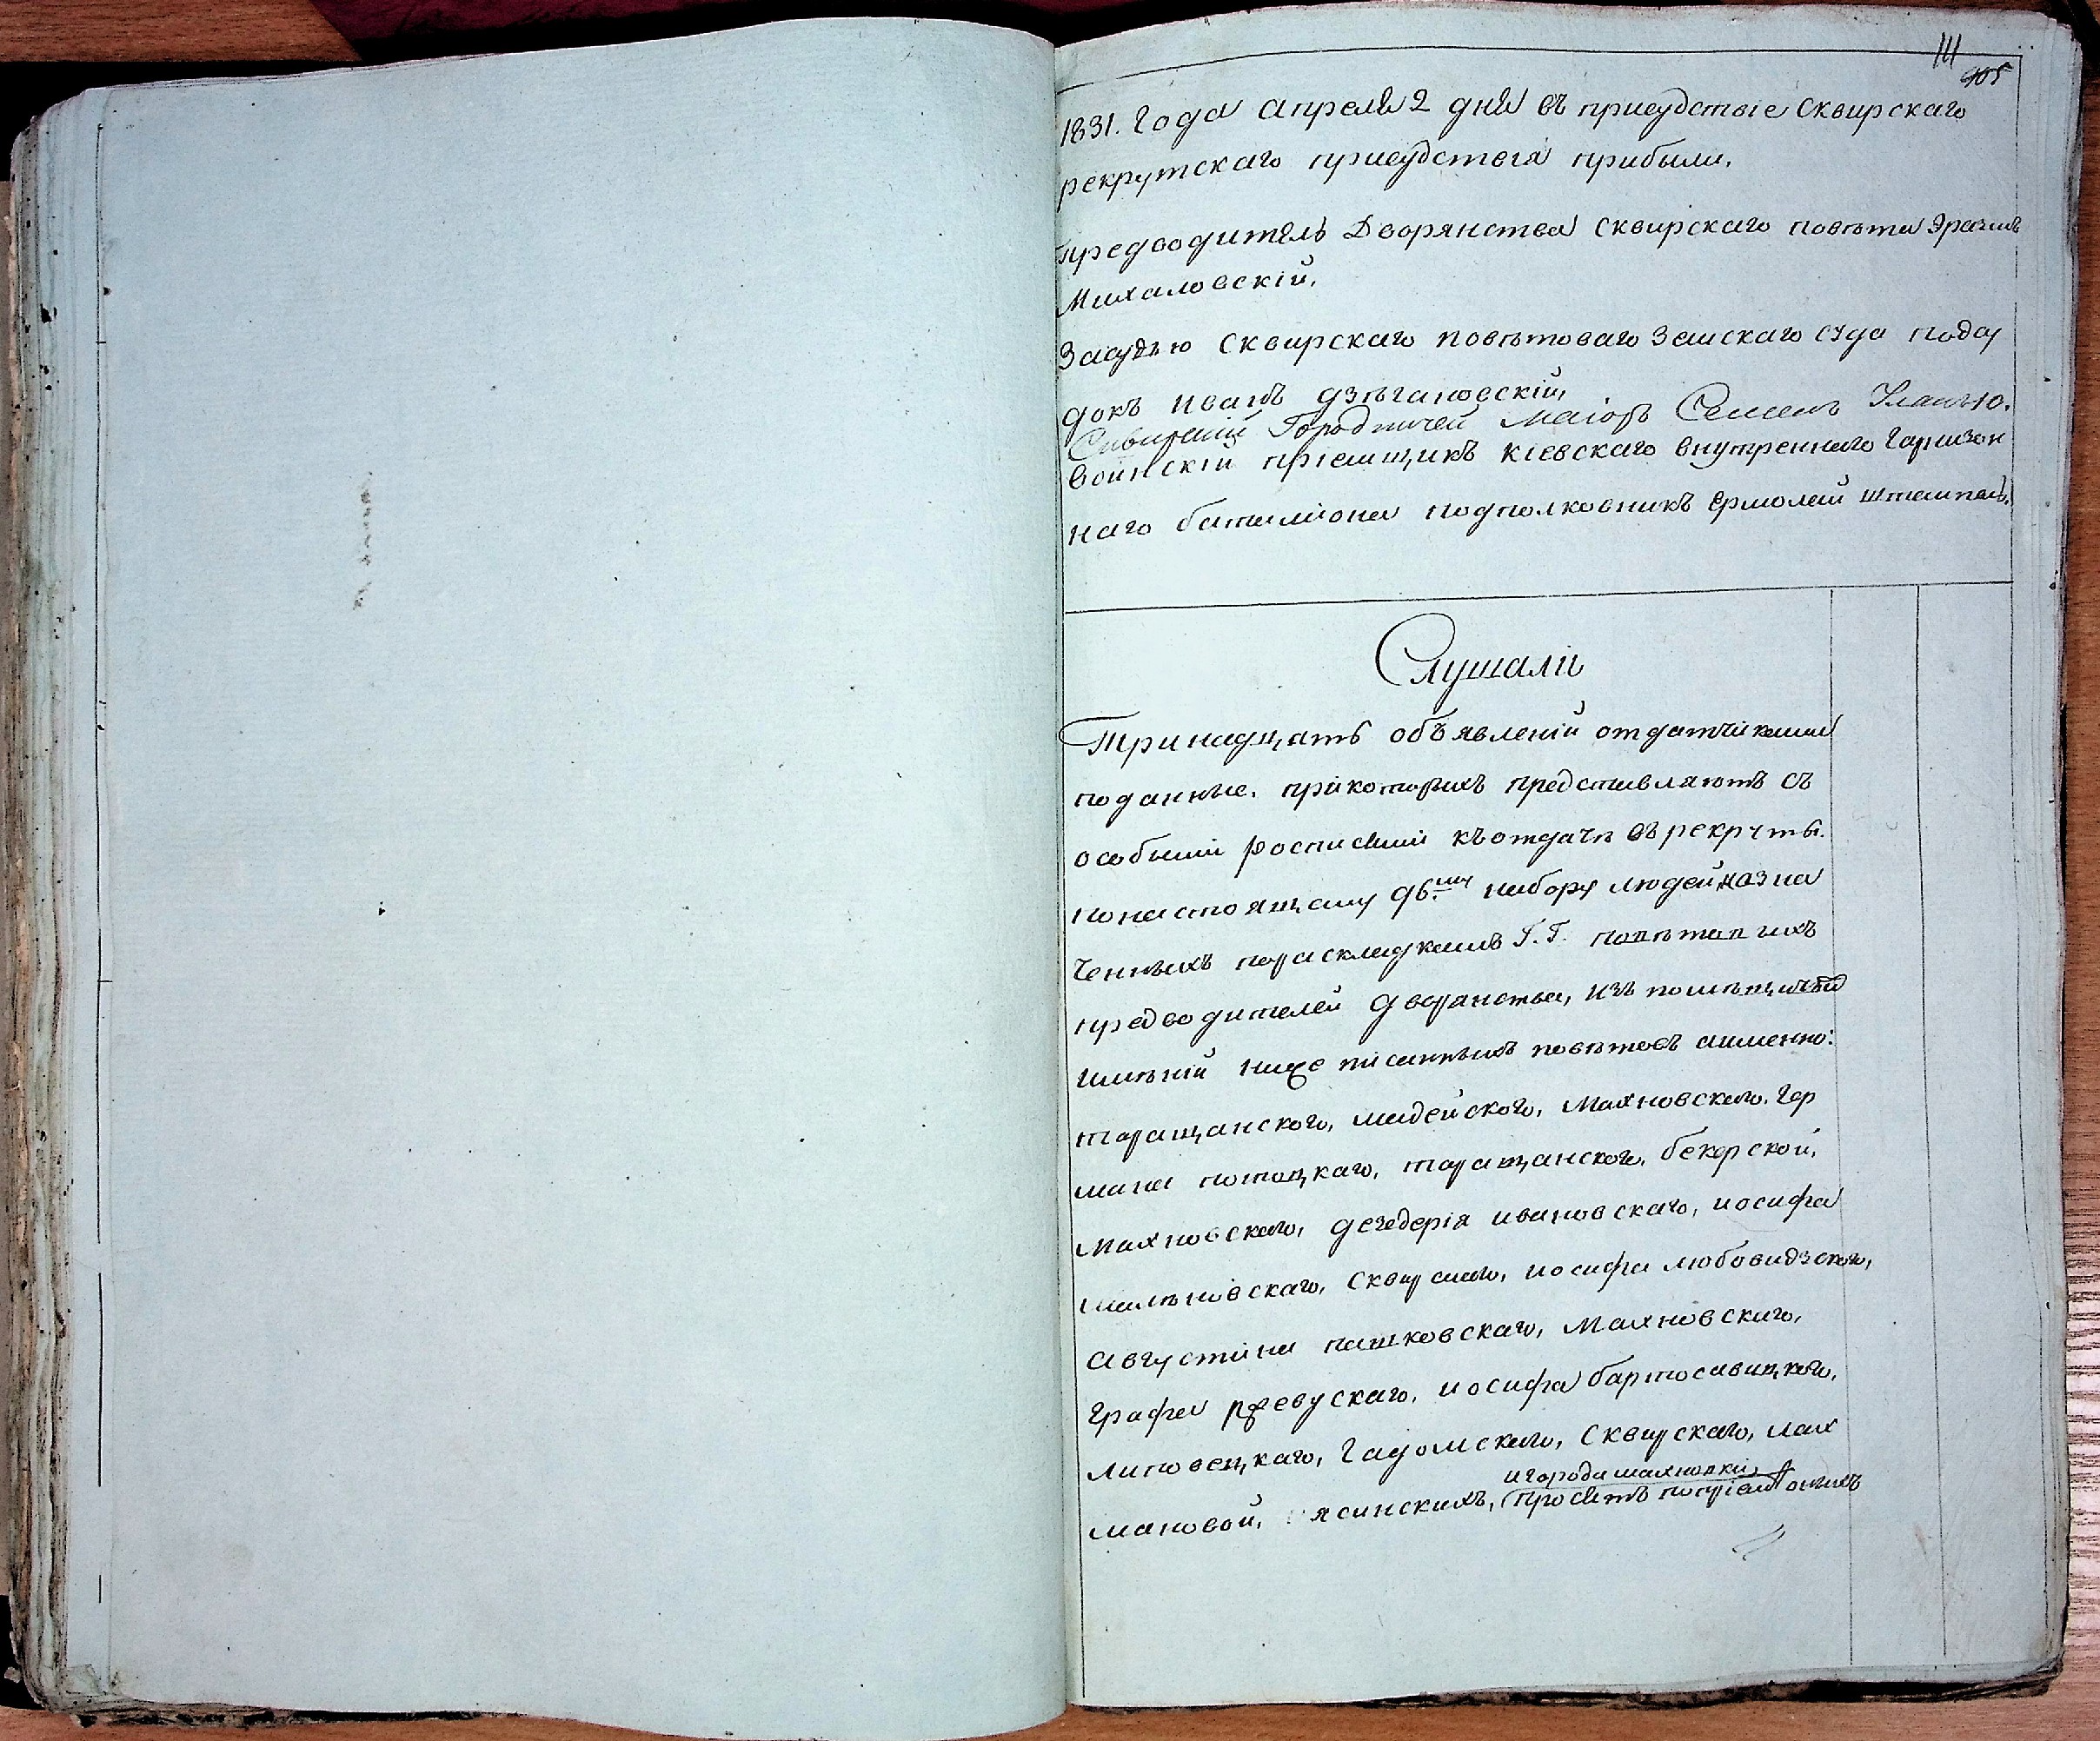 111
405
1831. Года Апреля 2 дня въ присудствіе Сквирскаго
рекрутскаго присудствія прибыли.
Предводитель Дворянства Сквирскаго повѣта Эразмъ
Михаловскій.
Засудью Сквирскаго повѣтоваго Земскаго суда подсу
докъ Иванъ
Сквирскій Городничей Маіоръ Семенъ
Воинскій пріемщикъ Кіевскаго внутренняго Гарнизон
наго баталіона подполковникъ Ермолай Штемпель.
Слушали
Тринадцать объявленій отдатчиками
поданные. при которыхъ представляютъ съ
особыми росписями къ отдачѣ въ рекруты.
по настоящему 96.му набору людей, назна
ченныхъ по раскладкамъ Г. Г. повѣтовыхъ
предводителей дворянства, изъ помѣщичьи
имѣній ниже писанныхъ повѣтовъ аименно:
таращанского, Махновскаго. Гер
мана потоцкаго, таращанского,
Махновскаго, дезедерія ивановскаго, иосифа
Сквирскаго, иосифа любовидзского,
Августина пашковскаго, Махновскаго,
Графа ржевускаго, иосифа
липовецкаго, Гадомскаго, Сквирскаго, лах
игорода махновки
мановой, ясинскихъ, просятъ попріемѣ оныхъ